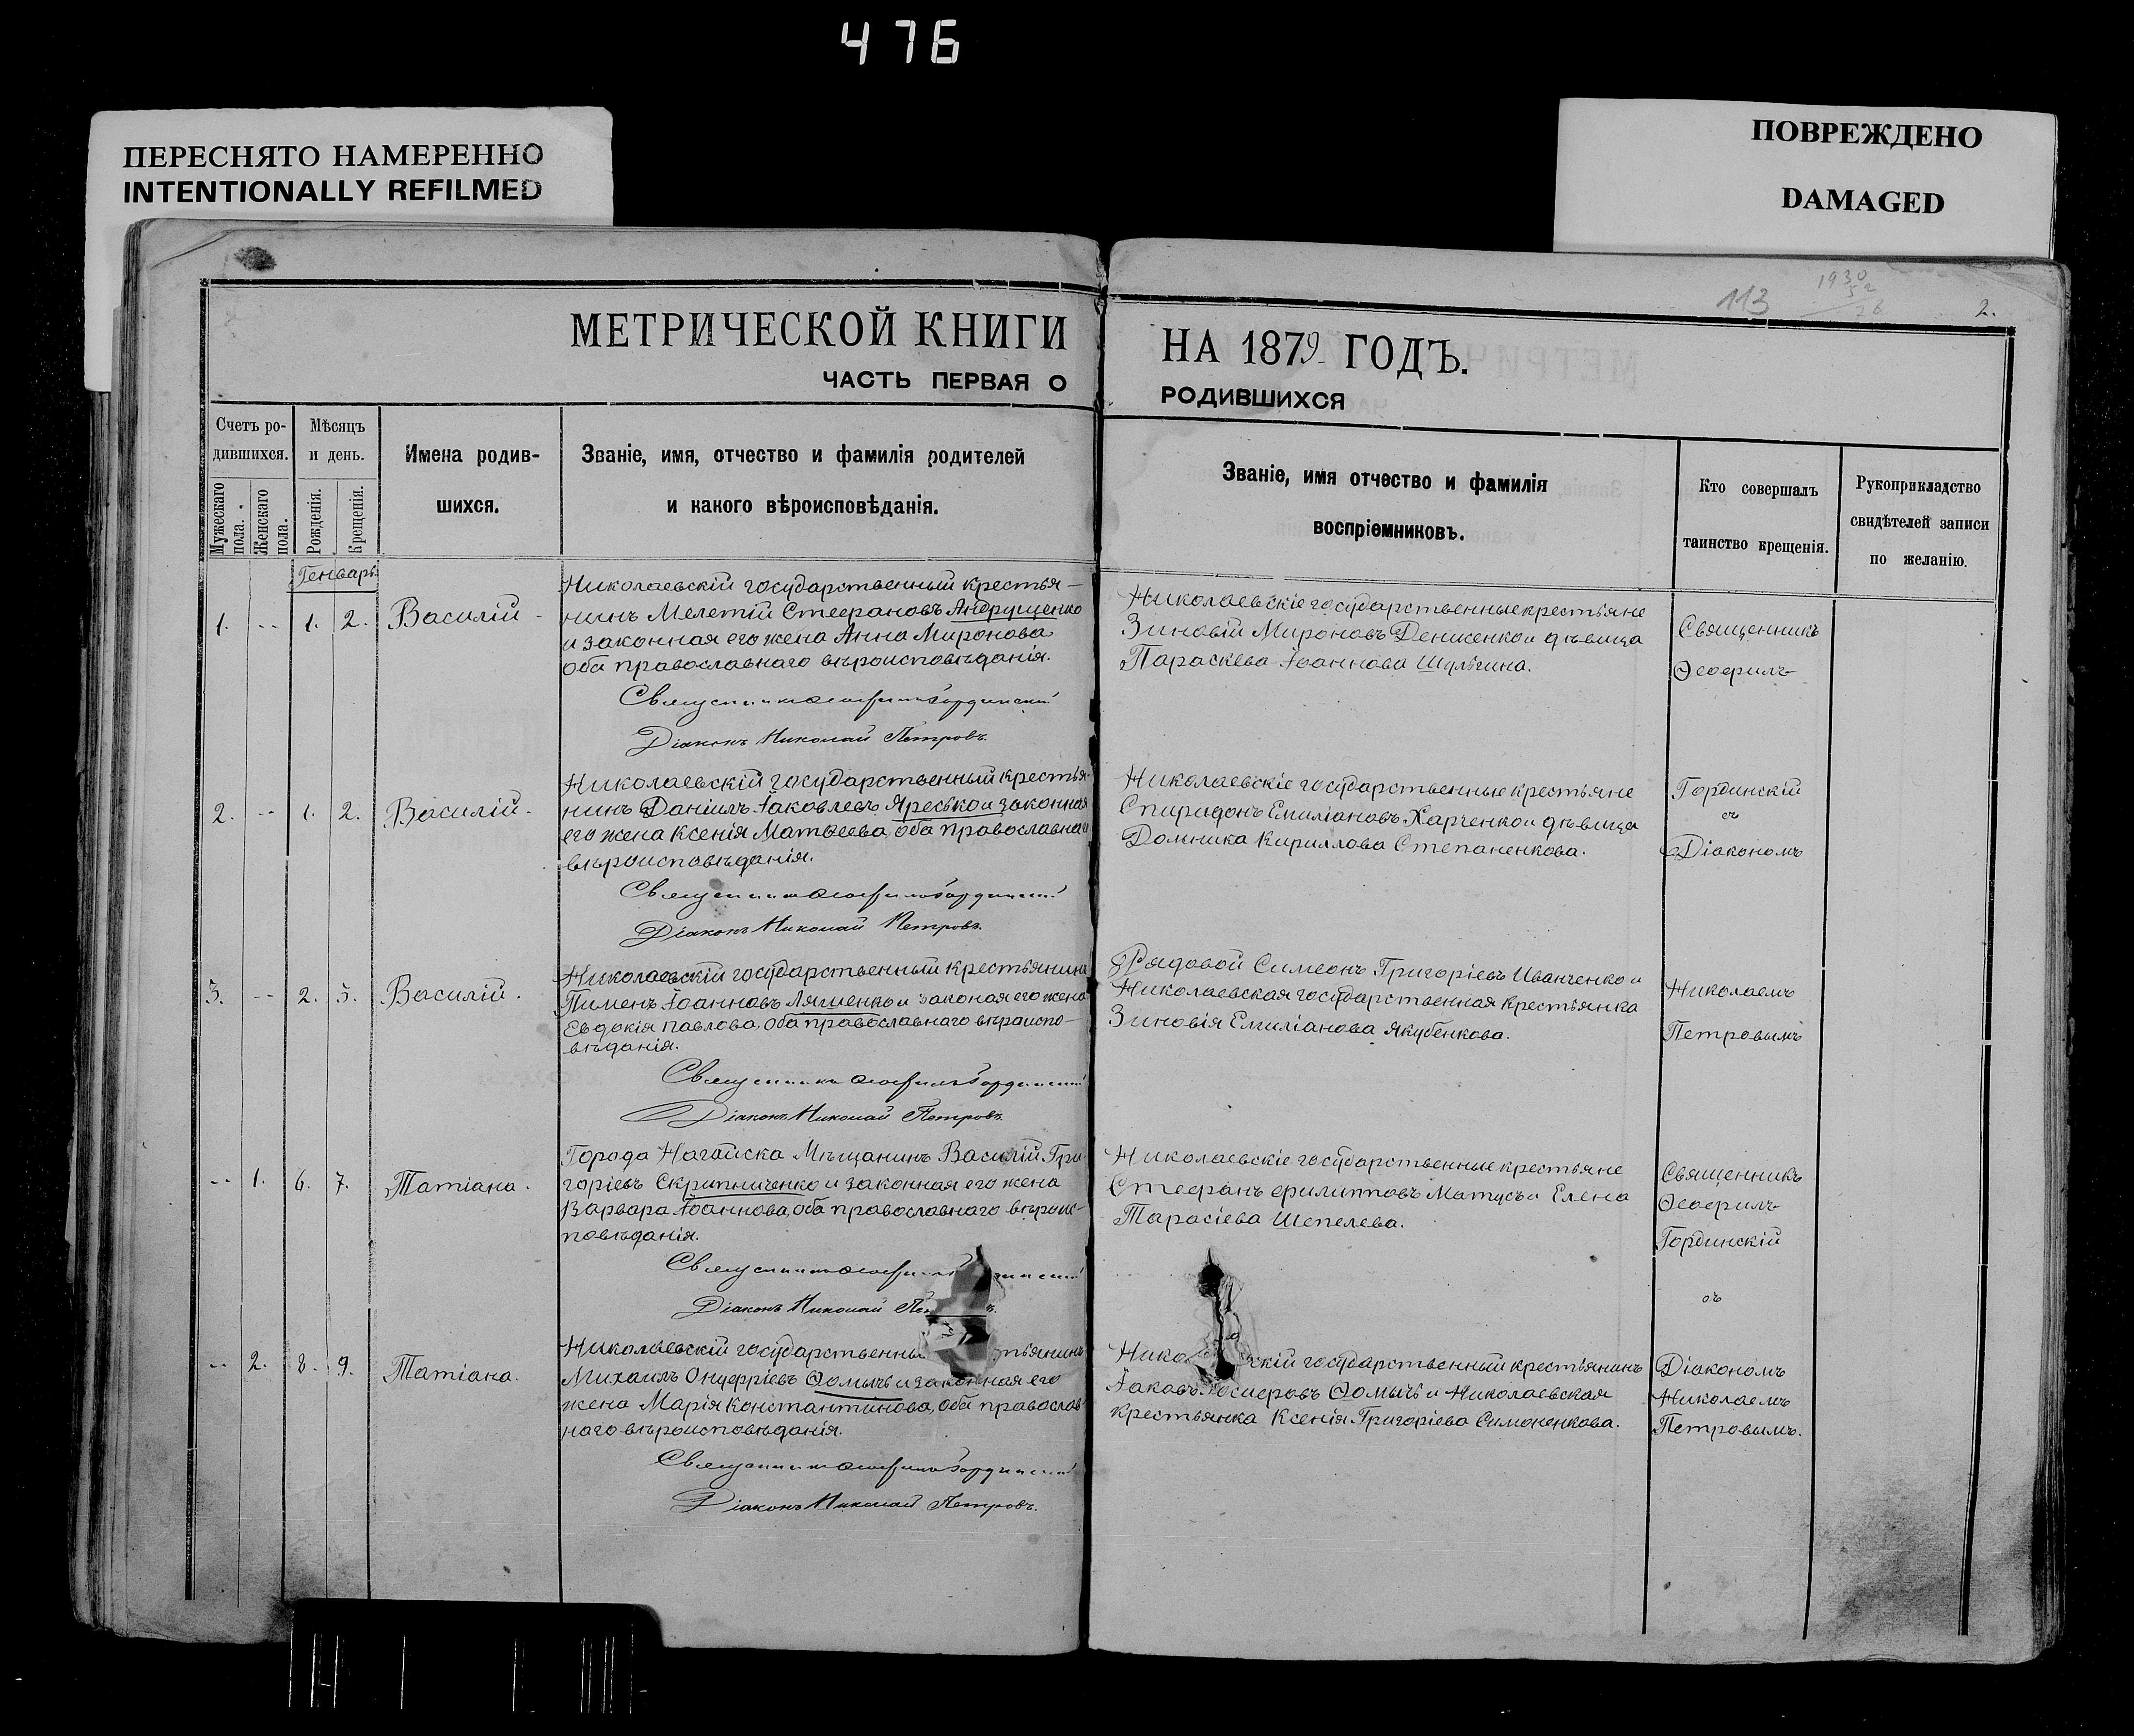 476
ПЕРЕСНЯТО НАМЕРЕННО
INTENTIONALLY REFILMED
ПОВРЕЖДЕНО
DAMAGED
113
1930
2.
МЕТРИЧЕСКОЙ КНИГИ
ЧАСТЬ ПЕРВАЯ О
НА 1879 ГОДЪ.
РОДИВШИХСЯ
Счетъ ро-
дившихся.
Мужескаго
пола.
Женскаго
пола.
Мѣсяцъ
и день.
Рожденія.
Крещенія.
Имена родив-
шихся.
Званіе, имя, отчество и фамилія родителей
и какого вѣроисповѣданія.
Званіе, имя отчество и фамилія
воспріемниковъ.
Кто совершалъ
таинство крещенія.
Рукоприкладство
свидѣтелей записи
по желанію.
Генварь
1. -- 1. 2. Василій -
Николаевскій государственный крестья-
нинъ Мелетій Стефановъ Андрущенко
и законная его жена Анна Миронова
оба православнаго вѣроисповѣданія.
Священникъ Ѳеофилъ Гординскій
Діаконъ Николай Петровъ.
Николаевскіе государственные крестьяне
Зиновій Мироновъ Денисенко и дѣвица
Параскева Іоаннова Шульгина.
Священникъ
Ѳеофилъ
2. -- 1. 2. Василій -
Николаевскій государственный крестья-
нинъ Даніилъ Іаковлевъ Яресько и законная
его жена Ксенія Матѳеева, оба православнаго
вѣроисповѣданія.
Священникъ Ѳеофилъ Гординскій
Діаконъ Николай Петровъ.
Николаевскіе государственные крестьяне
Спиридонъ Емиліановъ Харченко и дѣвица
Домника Кириллова Степаненкова.
Гординскій
съ
Діакономъ
3. -- 2. 5. Василій.
Николаевскій государственный крестьянинъ
Пименъ Іоанновъ Ляшенко и законая его жена
Евдокія Павлова, оба православнаго вѣроиспо-
вѣданія.
Священникъ Ѳеофилъ Гординскій
Діаконъ Николай Петровъ.
Рядовой Симеонъ Григоріевъ Иванченко и
Николаевская государственная крестьянка
Зиновія Емиліанова Якубенкова.
Николаемъ
Петровымъ
-- 1. 6. 7. Татіана.
Города Нагайска Мѣщанинъ Василій Гри-
горіевъ Скрипниченко и законная его жена
Варвара Іоаннова, оба православнаго вѣроис-
повѣданія.
Священникъ Ѳеофилъ
Діаконъ Николай
Николаевскіе государственные крестьяне
Стефанъ Филипповъ Матусь и Елена
Тарасіева Шепелева.
Священникъ
Ѳеофилъ
Гординскій
съ
-- 2. 8. 9. Татіана.
Николаевскій
Михаилъ Онуфріевъ Ѳомычъ и законная его
жена Марія Константинова, оба православ-
наго вѣроисповѣданія.
Священникъ Ѳеофилъ Гординскій
Діаконъ Николай Петровъ.
государственный крестьянинъ
Іаковъ Ѳомычъ и Николаевская
крестьянка Ксенія Григоріева Симоненкова.
Діакономъ
Николаемъ
Петровымъ.